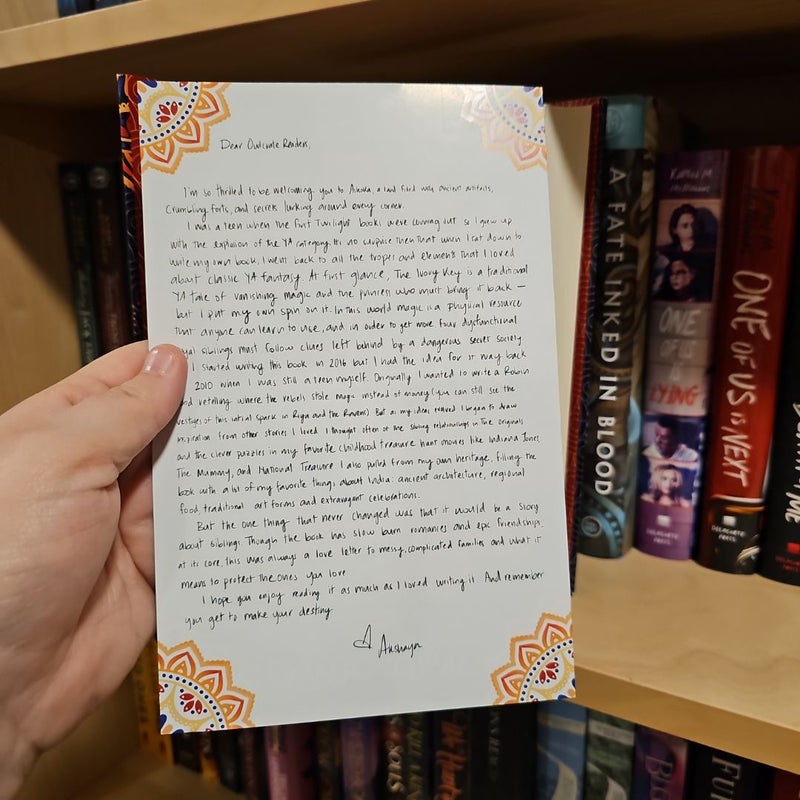 Dear Owlcrate Readers,
I'm so thrilled to be welcoming you to Ashoka, a land filled with ancient artifacts,
crumbling forts, and secrets lurking around every corner.
I was a teen when the first Twilight books were coming out so I grew up
with the explosion of the YA category. It's no surprise then that when I sat down to
write my own book, I went back to all the tropes and elements that I loved
about classic YA fantasy. At first glance, The Ivory Key is a traditional
YA tale of vanishing magic and the princess who must bring it back —
but I put my own spin on it. In this world magic is a physical resource
that anyone can learn to use, and in order to get more four dysfunctional
royal siblings must follow clues left behind by a dangerous secret society
I started writing this book in 2016 but I had the idea for it way back
2010 when I was still a teen myself. Originally I wanted to write a Robin
retelling where the rebels stole magic instead of money (you can still see the
vestiges of this initial spark in Riya and the Ravens) But as my ideas evolved I began to draw
inspiration from other stories I loved I thought often of the sibling relationships in The Originals
and the clever puzzles in my favorite childhood treasure hunt movies like Indiana Jones,
The Mummy, and National Treasure I also pulled from my own heritage, filling the
book with a lot of my favorite things about India: ancient architecture, regional
food, traditional art forms and extravagant celebrations.
But the one thing that never changed was that it would be a story
about siblings Though the book has slow burn romances and epic friendships,
at its core, this was always a love letter to messy, complicated families and what it
means to protect the ones you love
I hope you enjoy reading it as much as I loved writing it. And remember
you get to make your destiny
Akshaya
A FATE INKED IN BLOOD
KAREN M.
McMANUS
ONE
OF US
IS
LYING
DELACORTE
PRESS
ONE OF US IS NEXT
DELACORTE
PRESS